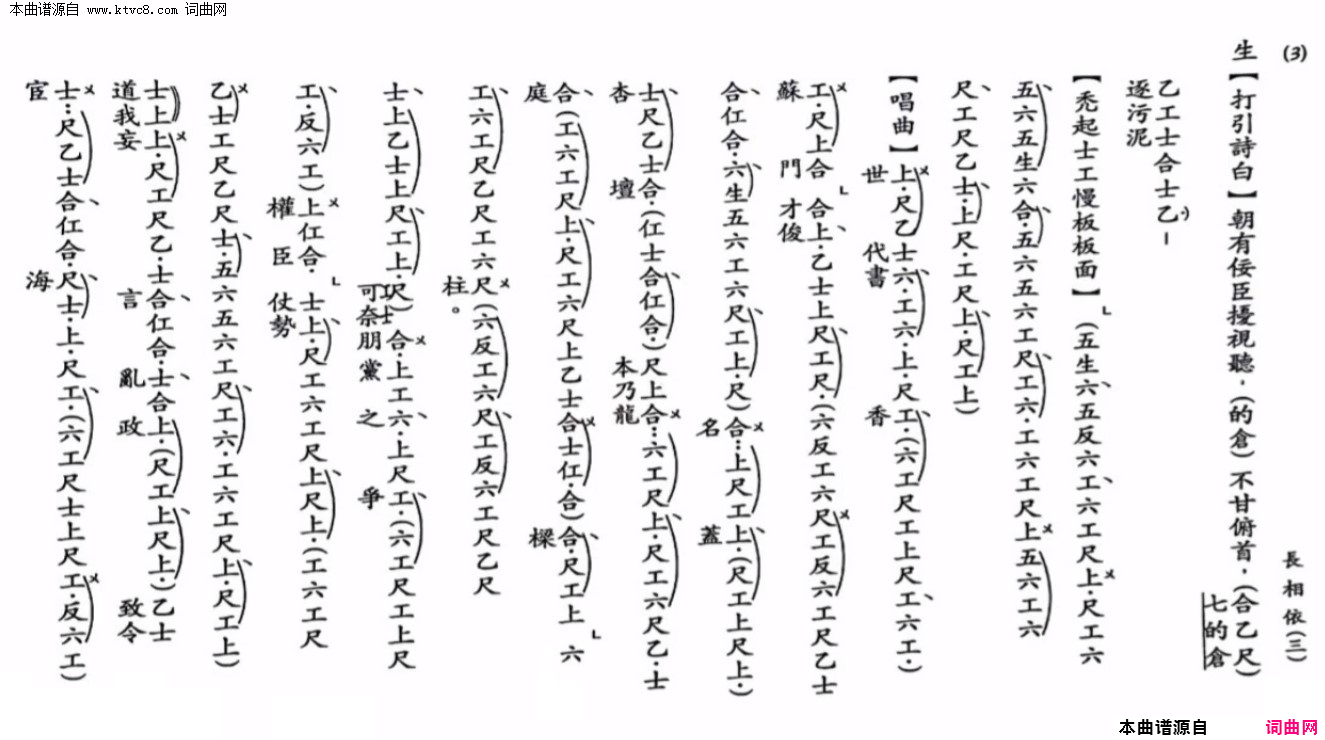 本曲谱源自 www.ktvc8.com 词曲网
(3)
長相依(三)
生【打引詩白】朝有佞臣擾視聽，(的倉)不甘俯首，(合乙尺)
七的倉
乙工士合士乙
逐污泥
【禿起士工慢板板面】(五生六五反六工六工尺上·尺工六
五六五生六合·五六五六工尺工六·工六工尺上五六工六
尺工尺乙士·上尺·工尺上·尺工上)
【唱曲】上·尺乙士六·工六·上·尺工·(六工尺工上尺工六工·)
世 代書 香
工·尺上合 合上·乙士上尺工尺·(六反工六尺工反六工尺乙士
蘇 門 才俊
合仜合·六生五六工六尺工上·尺)合…上尺工上·(尺工上尺上·)
名 蓋
士尺乙士合·(仜士合仜合·)尺上合…六工尺上·尺工六尺乙·士
杏 壇 本乃龍
合·(工六工尺上·尺工六尺上乙士合士仜·合)合·尺工上 六
庭 樑
工六工尺乙尺工六尺(六反工六尺工反六工尺乙尺
柱。
士上乙士上尺工上·尺)合·上工六·上尺工·(六工尺工上尺
可奈朋黨 之 爭
工·反六工)上仜合· 士上·尺工六工尺上尺上·(工六工尺
權 臣 仗勢
乙士工尺乙尺士·五六五六工尺工六·工六工尺上·尺工上)
士上上·尺工尺乙·士合仜合·士合上·(尺工上尺上·)乙士
道我妄 言 亂 政 致令
士…尺乙士合仜合·尺士·上·尺工·(六工尺士上尺工·反六工)
宦 海
本曲谱源自 词曲网